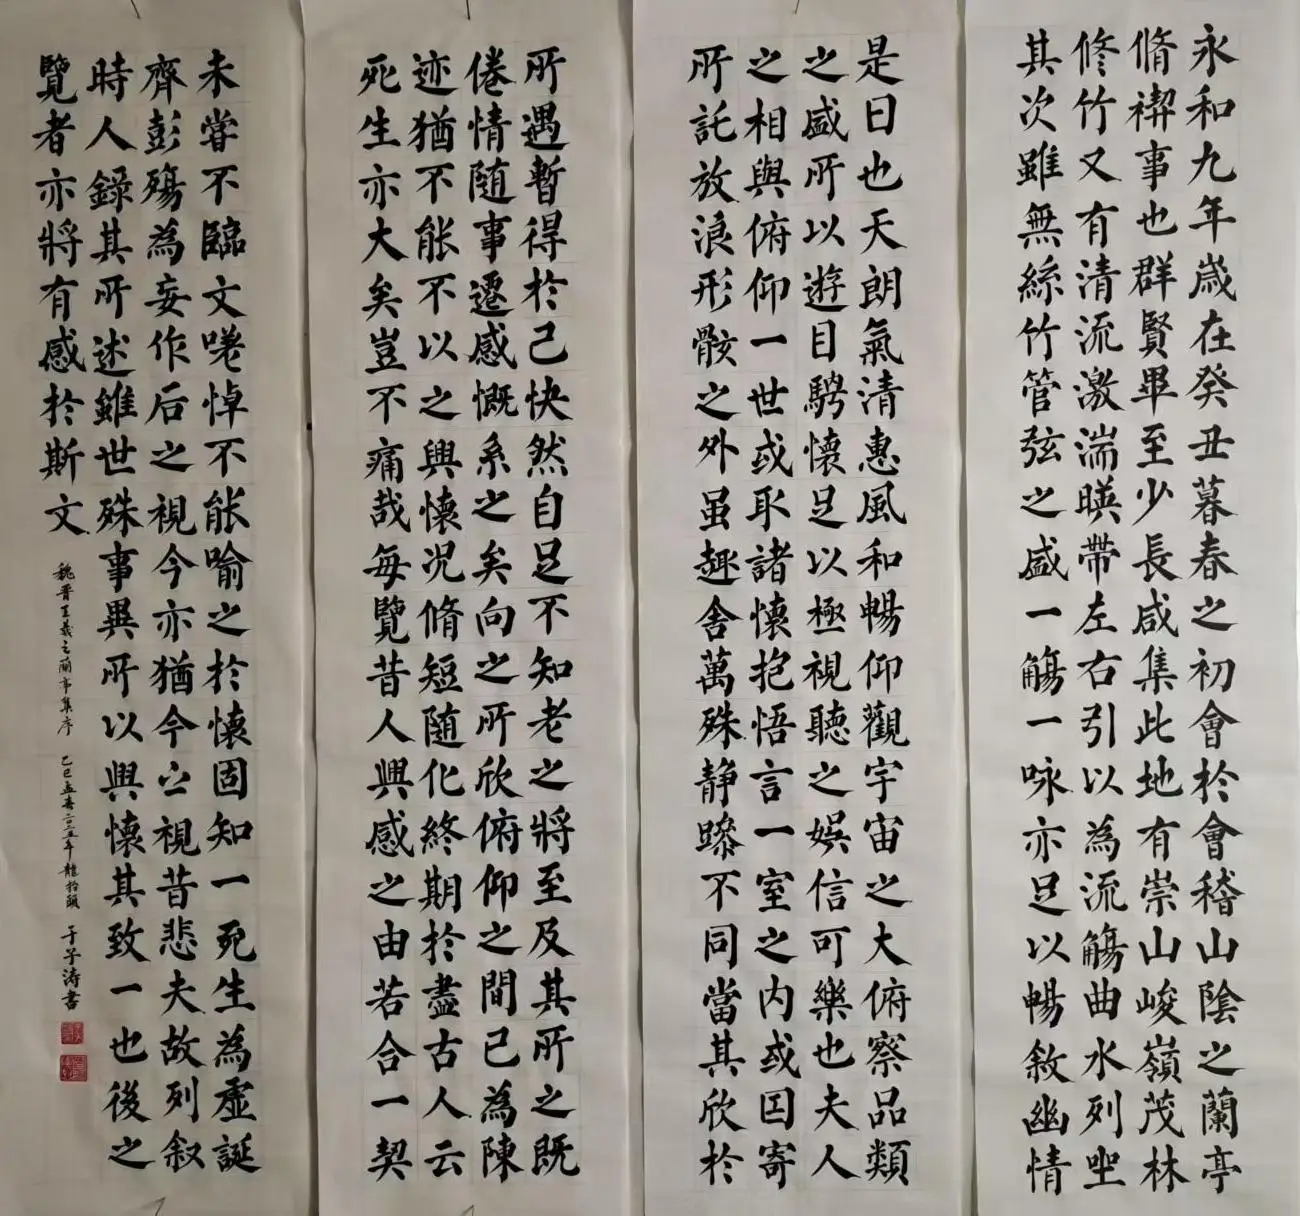 永和九年歲在癸丑暮春之初會於會稽山陰之蘭亭
脩禊事也群賢畢至少長咸集此地有崇山峻嶺茂林
修竹又有清流激湍暎帶左右引以為流觴曲水列坐
其次雖無絲竹管弦之盛一觴一咏亦足以暢敘幽情
是日也天朗氣清惠風和暢仰觀宇宙之大俯察品類
之盛所以遊目騁懷足以極視聽之娛信可樂也夫人
之相與俯仰一世或取諸懷抱悟言一室之内或因寄
所託放浪形骸之外虽趣舍萬殊静躁不同當其欣於
所遇暫得於己快然自足不知老之將至及其所之既
倦情随事遷感慨系之矣向之所欣俯仰之間已為陳
迹猶不能不以之興懷况脩短随化終期於盡古人云
死生亦大矣豈不痛哉每覽昔人興感之由若合一契
未甞不臨文嗟悼不能喻之於懷固知一死生為虛誕
齊彭殤為妄作后之視今亦猶今之視昔悲夫故列叙
時人錄其所述雖世殊事異所以興懷其致一也後之
覽者亦將有感於斯文
魏晋王羲之蘭亭集序 乙巳孟春二〇二五年龍抬頭 于子涛書